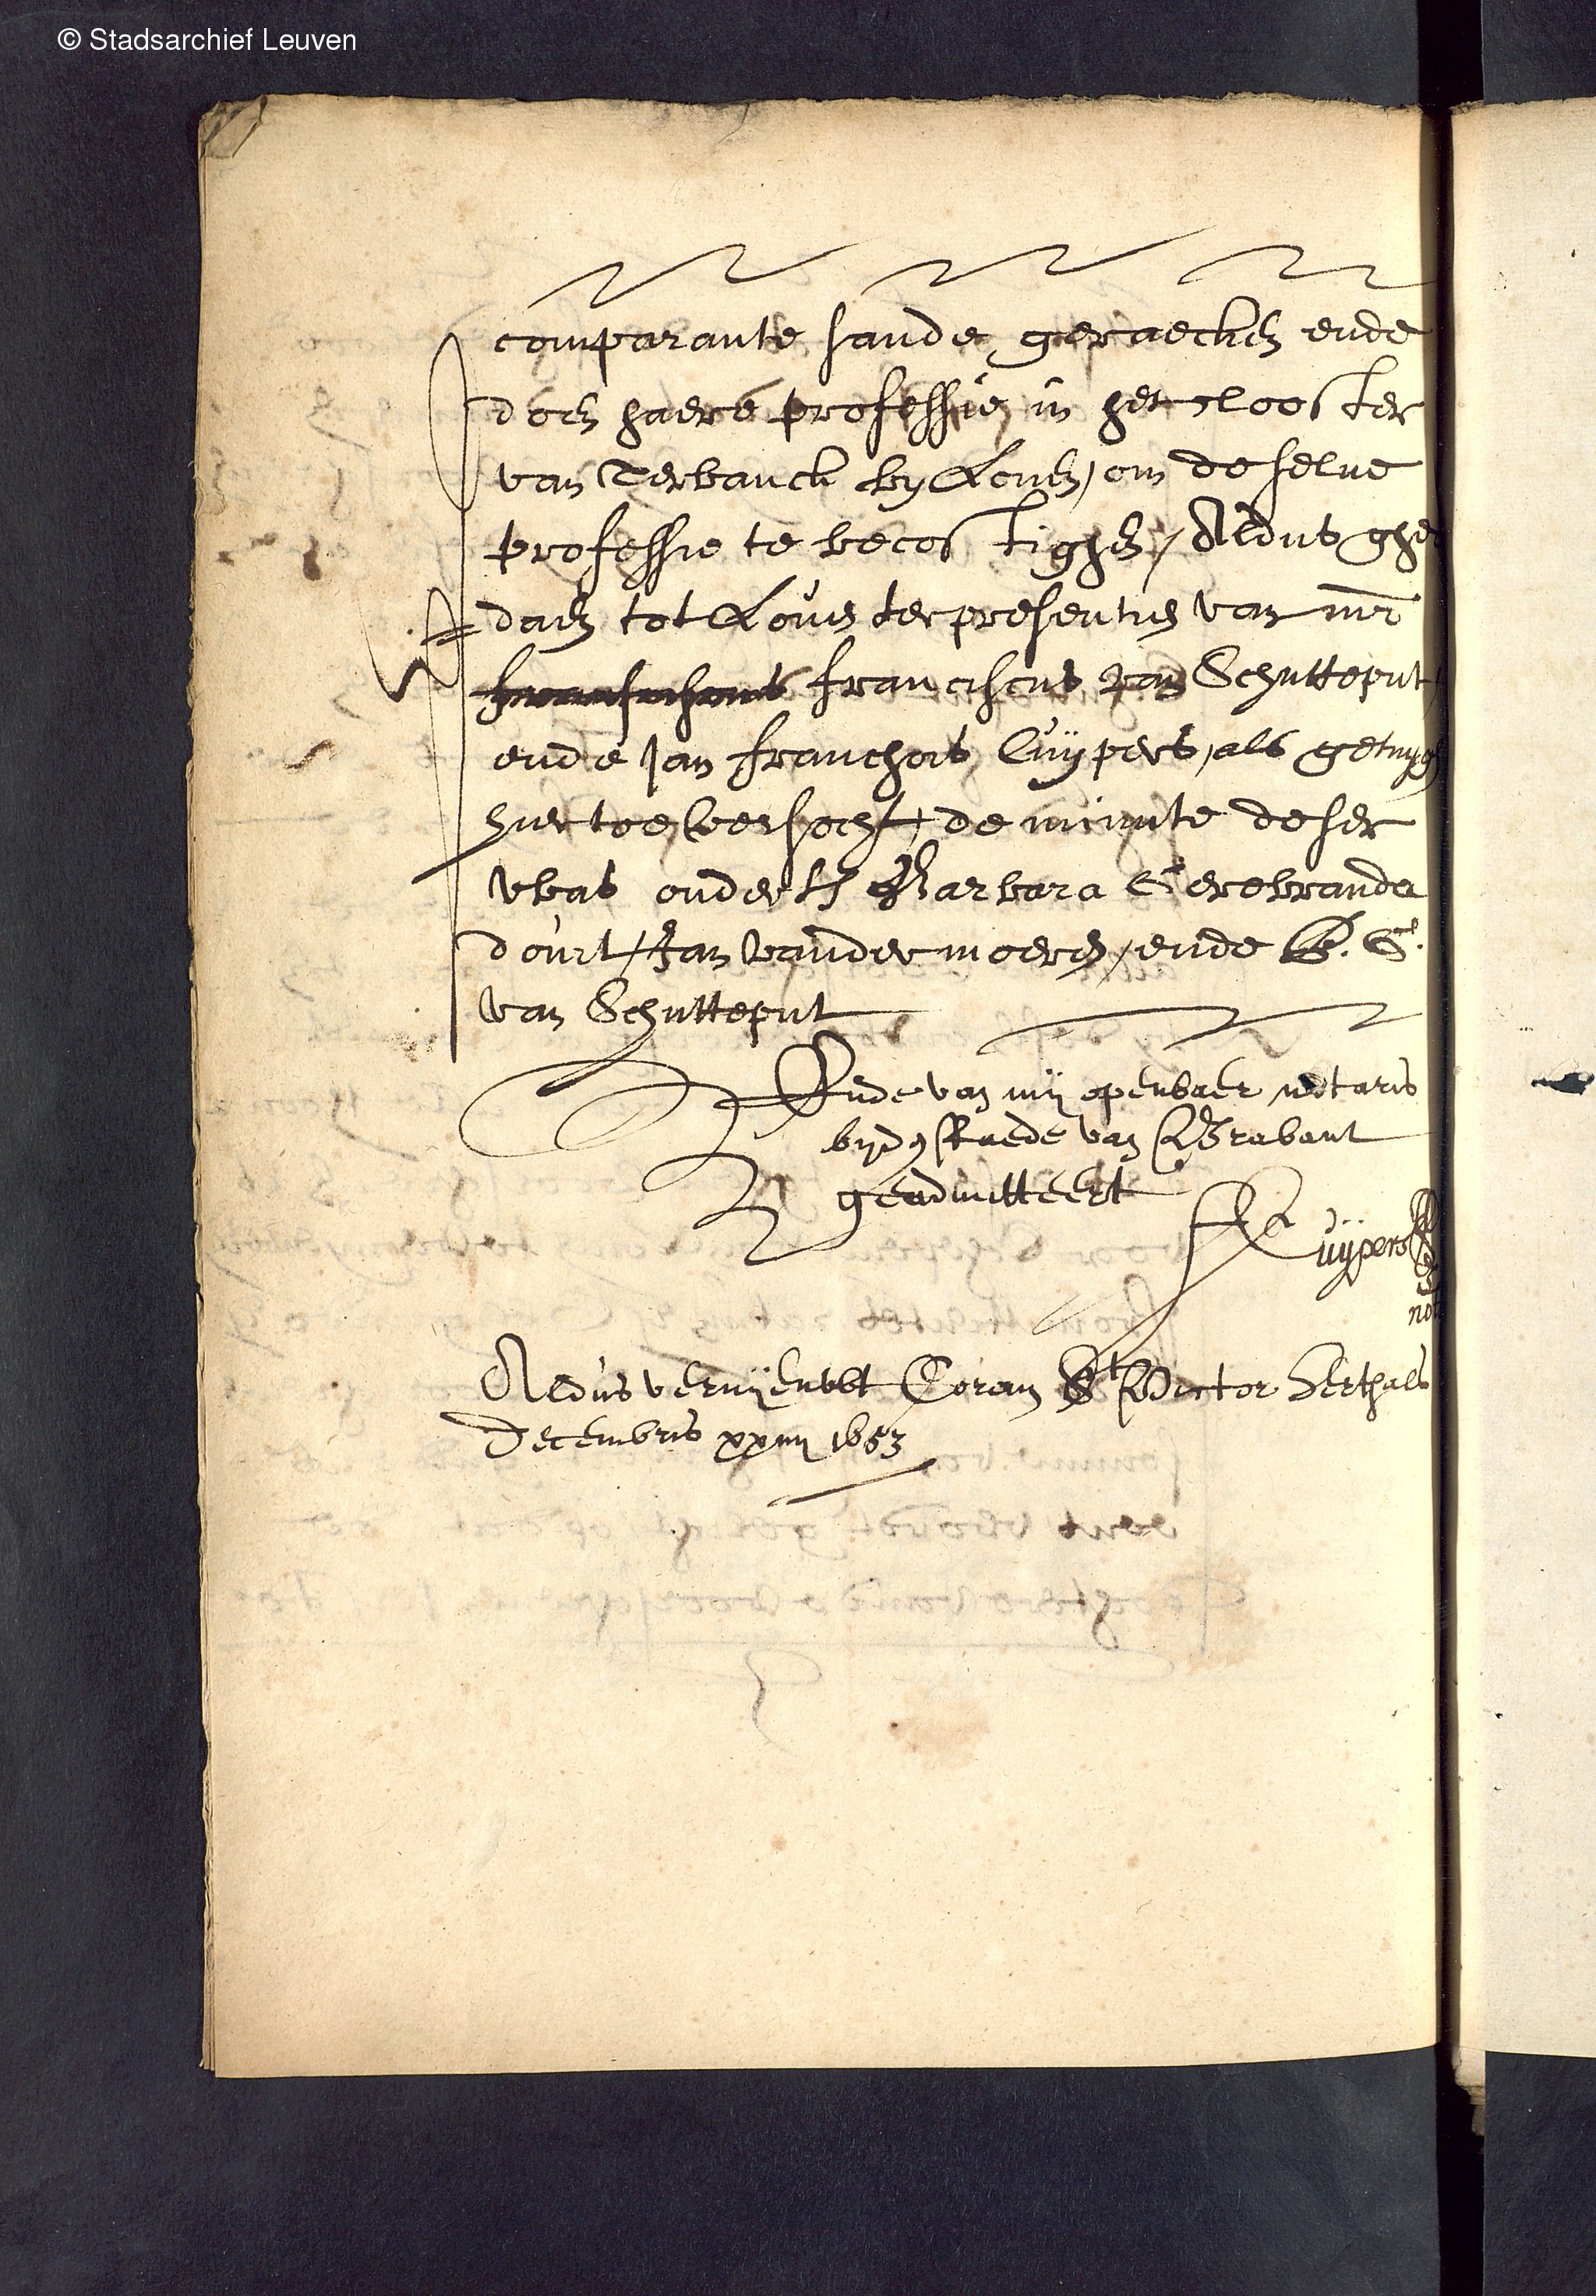 © Stadsarchief Leuven
comparante hande geraecken ende
doen haere professie in het clooster
van Terbanck by Loven, om de selve
professie te becostighen, Aldus ghe
daen tot Loven ter presentien van mr
franciscus van Schutteput
ende Jan franchois Cuypers, als getuyg
hier toe versocht, de minute deser
was onderts Barbara Gerebrande
douit, Jan vander moeren, ende B. G.
van Schutteput
Ende van mij openbaer notaris
byde Raede van Brabant
geadmitteert
Cuijpers
not
Aldus vernijeuwt Coram St Victor Herthals
Decembris xxiiij 1653